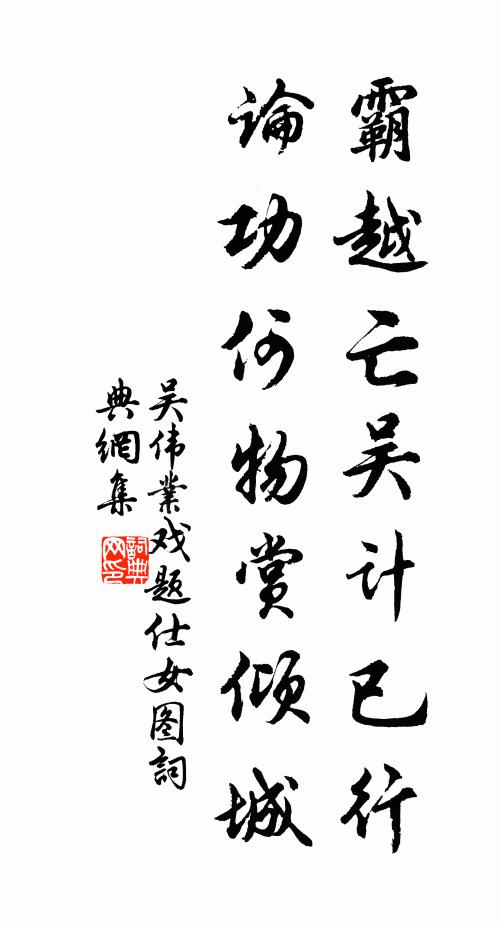 霸越亡吴计已行
論功何物赏倾城
吴伟業戏题仕女图詞
典網集
詞典
网印